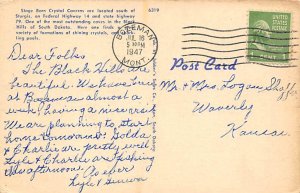 Stage Barn Crystal Caverns are located south of
Sturgis, on Federal Highway 14 and state highway
79. One of the most outstanding caves in the Black
Hills of South Dakota. Here one finds a large
variety of formations of shining crystals,
ling pools.
6219
BOZEMAN
JUL 18
5 30 PM
1947
MONT.
Post Card
Dear Folks
The Black Hills are
beautiful. We have
at Bozeman almost a
week, having a nice visit
We are planning to start
home tomorrow. Golda
& Charlie are pretty well
Lyle & Charlie are fishing
this afternoon.
Lyle & Geneva
Mr & Mrs. Logan
Waverly
Kansas